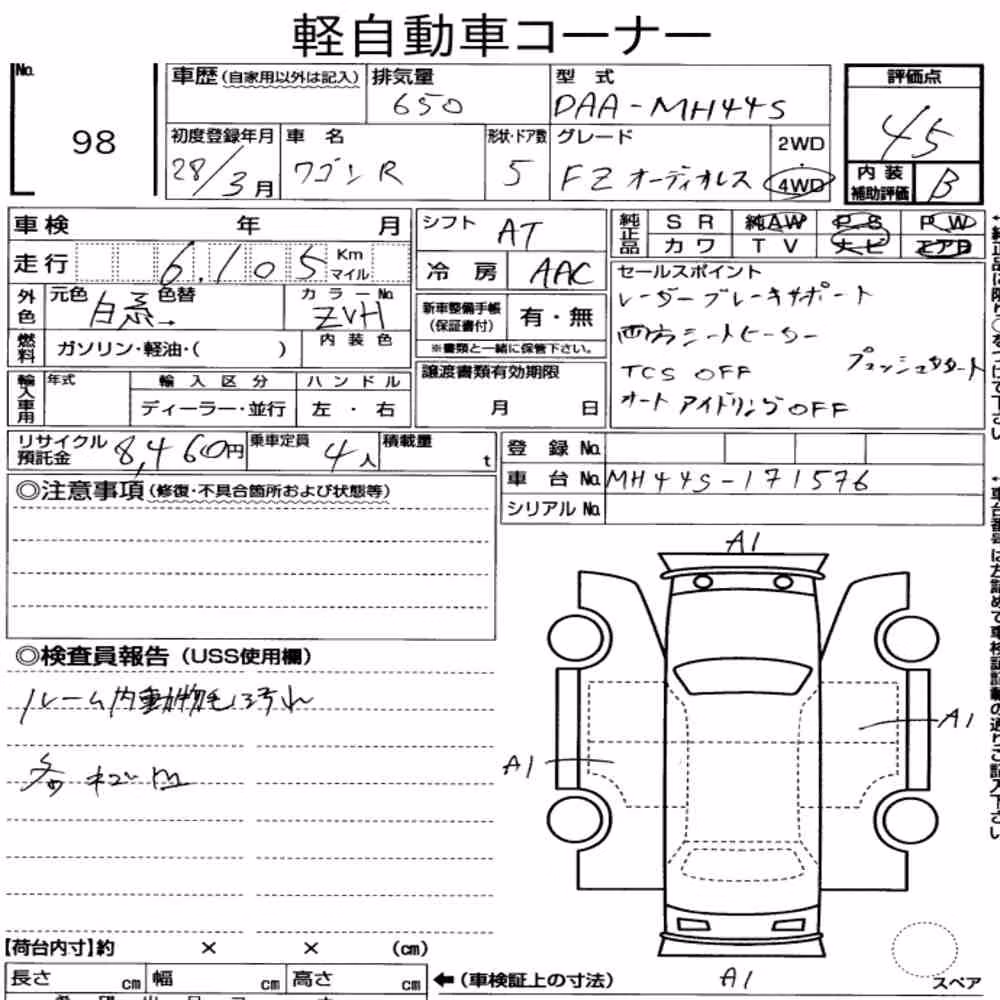 軽自動車コーナー
No. 98
車歴(自家用以外は記入) 排気量 650 型式 DAA-MH44S 評価点 45
初度登録年月 28/3月 車名 ワゴンR 形状・ドア数 5 グレード FZ オーディオレス 2WD・4WD 内装補助評価 B
車検 年 月
シフト AT
純正品 SR 純AW PS PW
カワ TV ナビ エアB
走行 6,105 Km マイル
冷房 AAC
セールスポイント
レーダーブレーキサポート
両方シートヒーター
プッシュスタート
TCS OFF
オートアイドリングOFF
外色 元色 白系→ 色替 カラーNo. ZVH
新車整備手帳(保証書付) 有・無
※書類と一緒に保管下さい。
燃料 ガソリン・軽油・( ) 内装色
輸入車用 年式 輸入区分 ハンドル
ディーラー・並行 左・右
譲渡書類有効期限
月 日
リサイクル預託金 8,460円 乗車定員 4人 積載量 t
登録No.
車台No. MH44S-171576
シリアルNo.
◎注意事項(修復・不具合箇所および状態等)
◎検査員報告(USS使用欄)
ルーム内動物毛 汚れ
A1
A1
A1
A1
スペア
【荷台内寸】約 × × (cm)
長さ cm 幅 cm 高さ cm ←(車検証上の寸法)